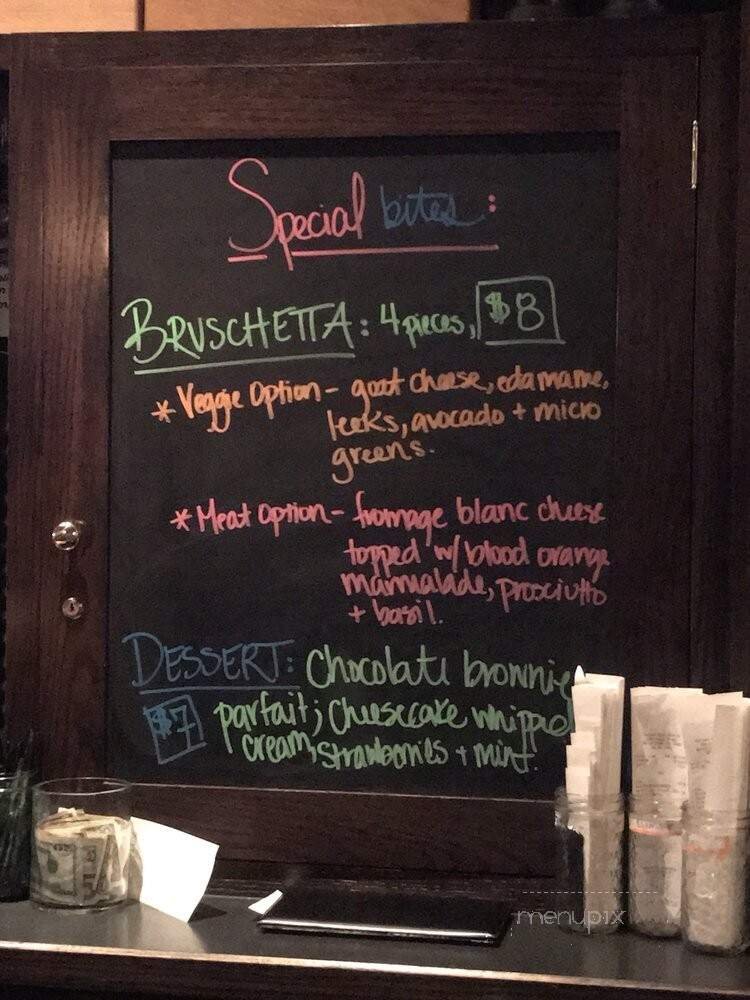 Special bites:
BRUSCHETTA: 4 pieces, $8
* Veggie Option - goat cheese, edamame,
leeks, avocado + micro
greens.
* Meat option - fromage blanc cheese
topped w/ blood orange
marmalade, prosciutto
+ basil.
DESSERT: Chocolate brownie
$7 parfait; cheesecake whipped
cream, strawberries + mint.
menupix